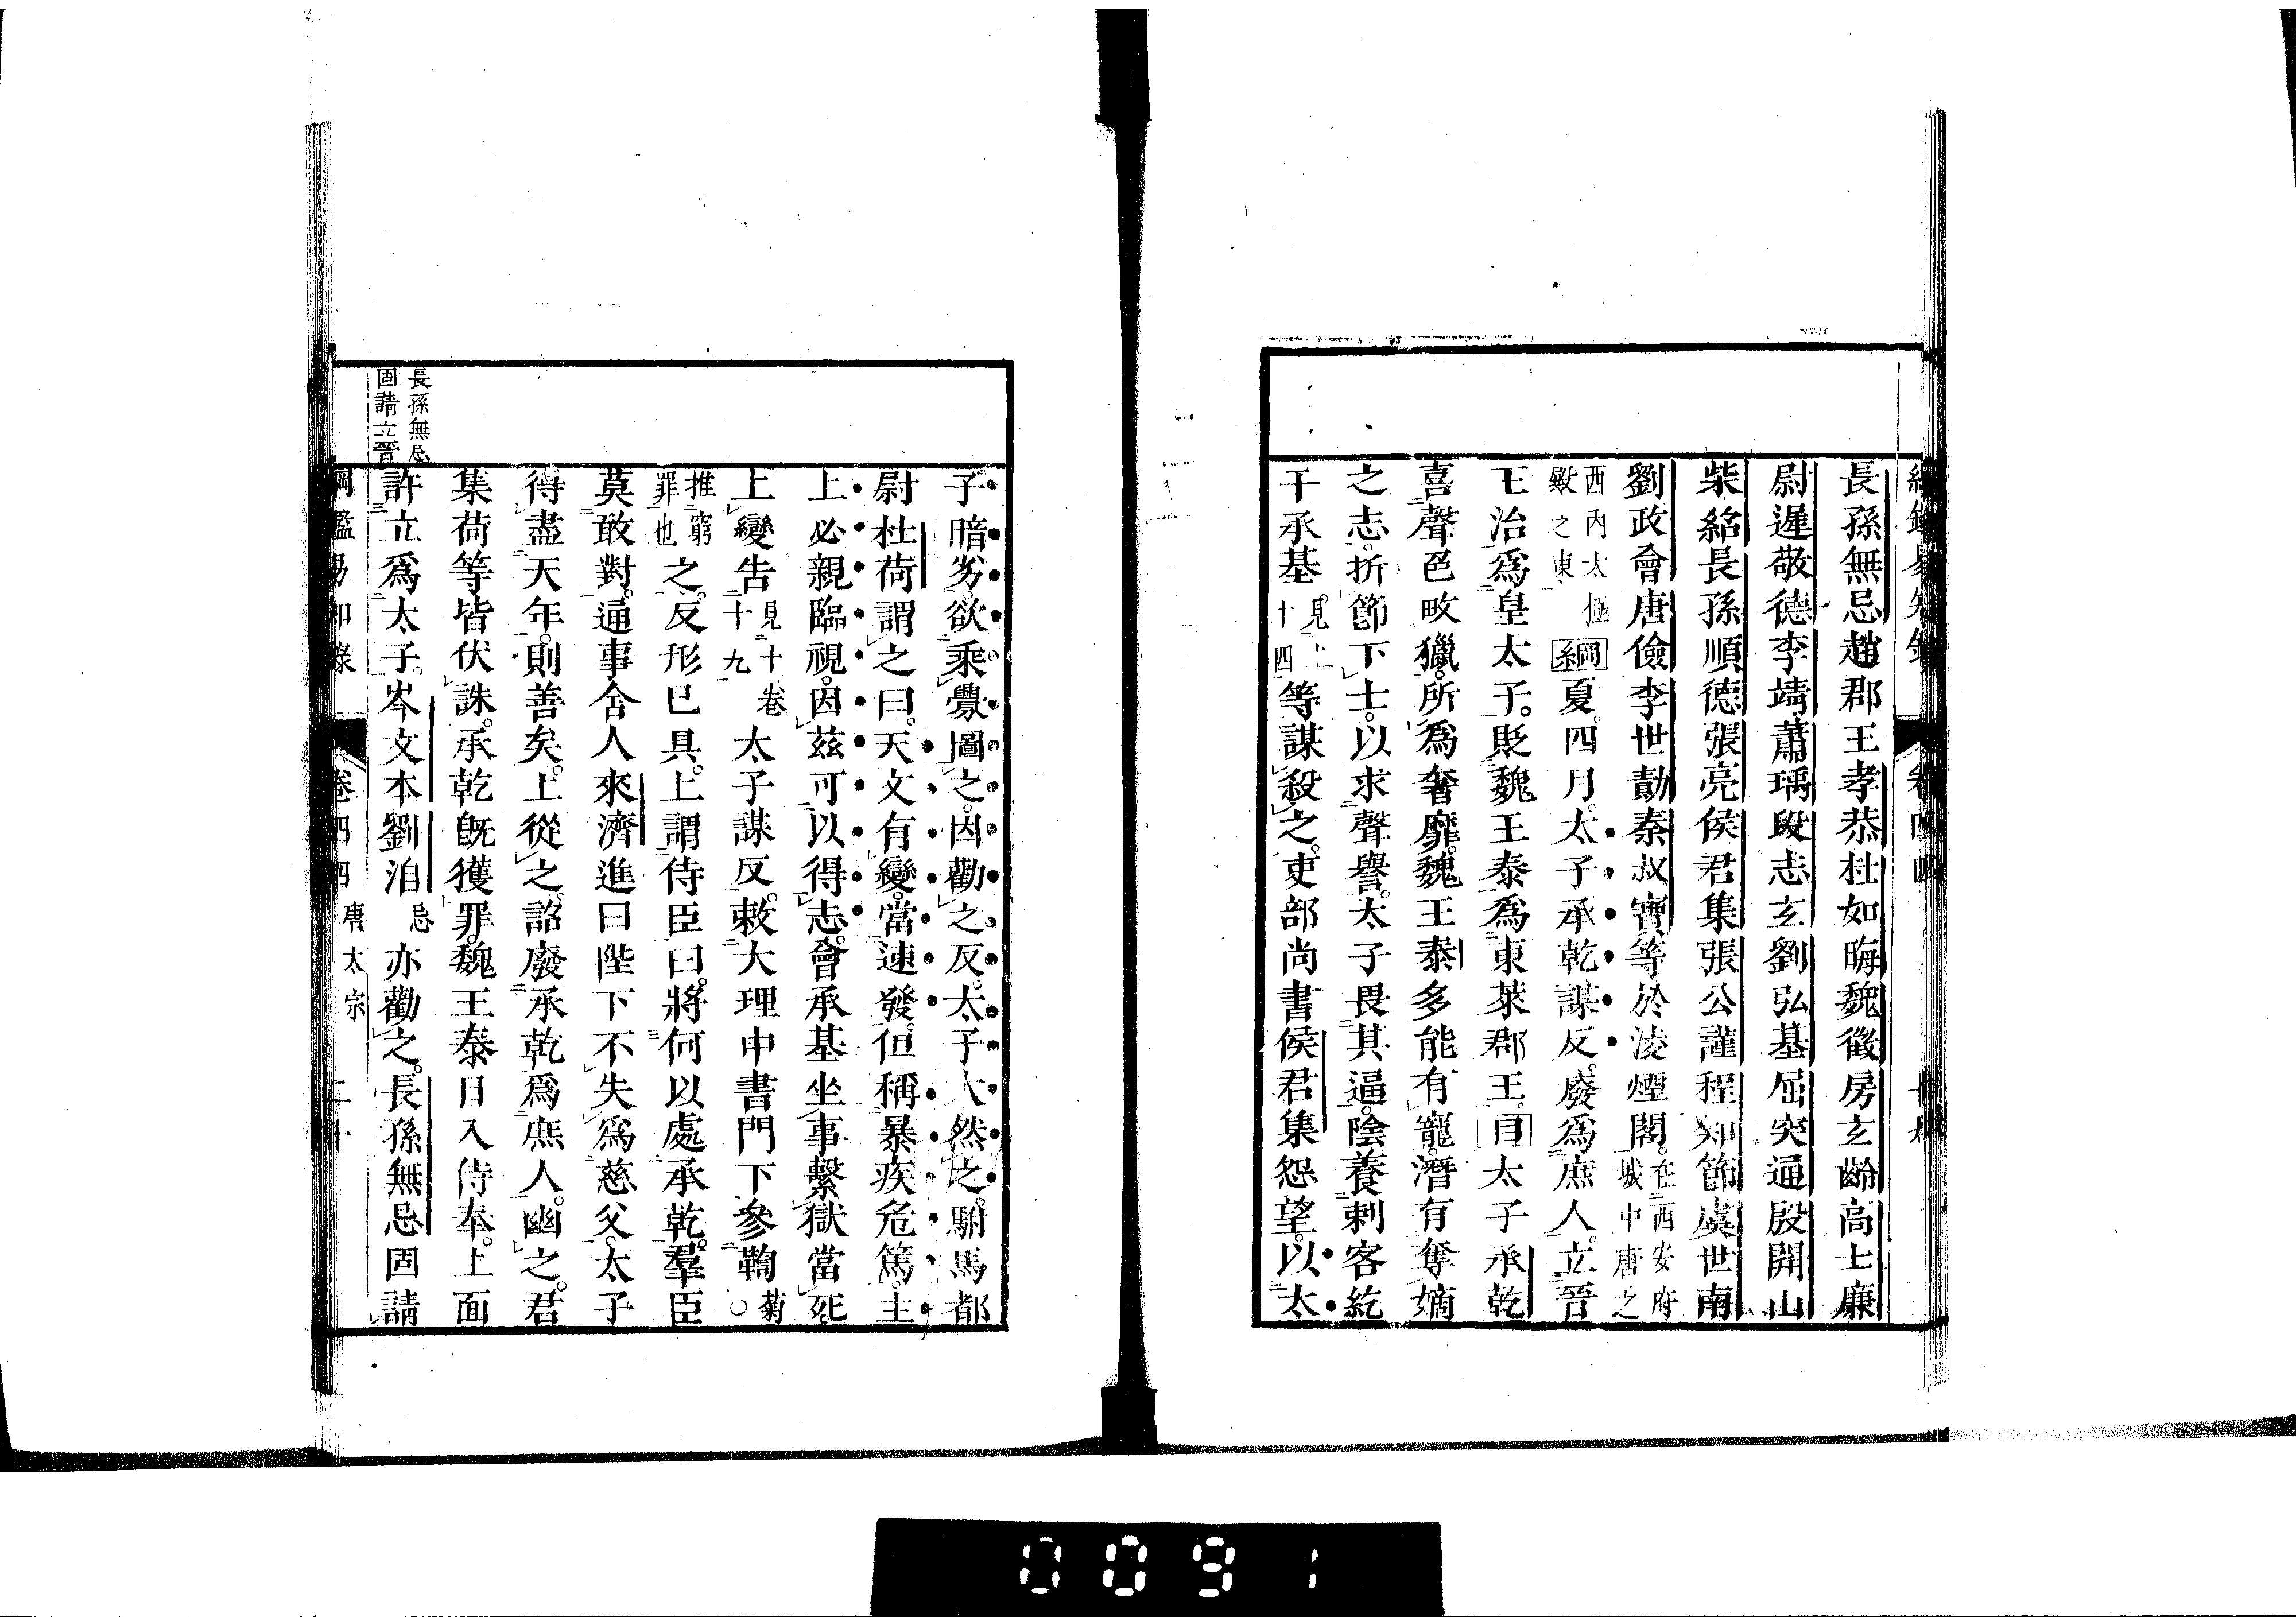 長孫無忌趙郡王孝恭杜如晦魏徵房玄齡高士廉
尉遲敬德李靖蕭瑀段志玄劉弘基屈突通殷開山
柴紹長孫順德張亮侯君集張公謹程知節虞世南
劉政會唐儉李世勣秦叔寶等於淩煙閣。在西安府城中唐之
西內太極殿之東綱夏。四月。太子承乾謀反。廢爲庶人。立晉
王治爲皇太子。貶魏王泰爲東萊郡王。目太子承乾
喜聲色畋獵。所爲奢靡。魏王泰多能有寵。潛有奪嫡
之志。折節下士。以求聲譽。太子畏其逼。陰養刺客紇
干承基。見上十四等謀殺之。吏部尚書侯君集怨望。以太
子暗劣。欲乘釁圖之。因勸之反。太子大然之。駙馬都
尉杜荷謂之曰。天文有變。當速發。但稱暴疾危篤。主
上必親臨視。因茲可以得志。會承基坐事繫獄當死。
上變告見十卷十九太子謀反。敕大理中書門下參鞫菊○
推窮罪也之。反形已具。上謂侍臣曰。將何以處承乾。羣臣
莫敢對。通事舍人來濟進曰陛下不失爲慈父。太子
得盡天年。則善矣。上從之。詔廢承乾爲庶人。幽之。君
集荷等皆伏誅。承乾旣獲罪。魏王泰日入侍奉。上面
許立爲太子。岑文本劉洎忌亦勸之。長孫無忌固請
長孫無忌
固請立晉
綱鑑易知錄 卷四四 唐太宗
0091